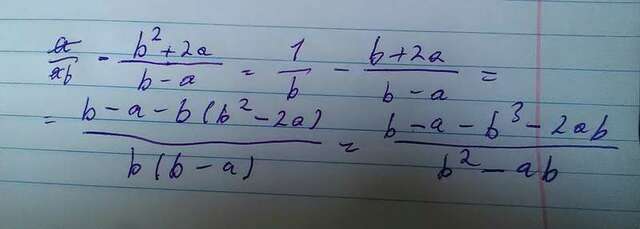 a/ab - (b²+2a)/(b-a) = 1/b - (b+2a)/(b-a) =
= (b-a-b(b²-2a))/(b(b-a)) = (b-a-b³-2ab)/(b²-ab)